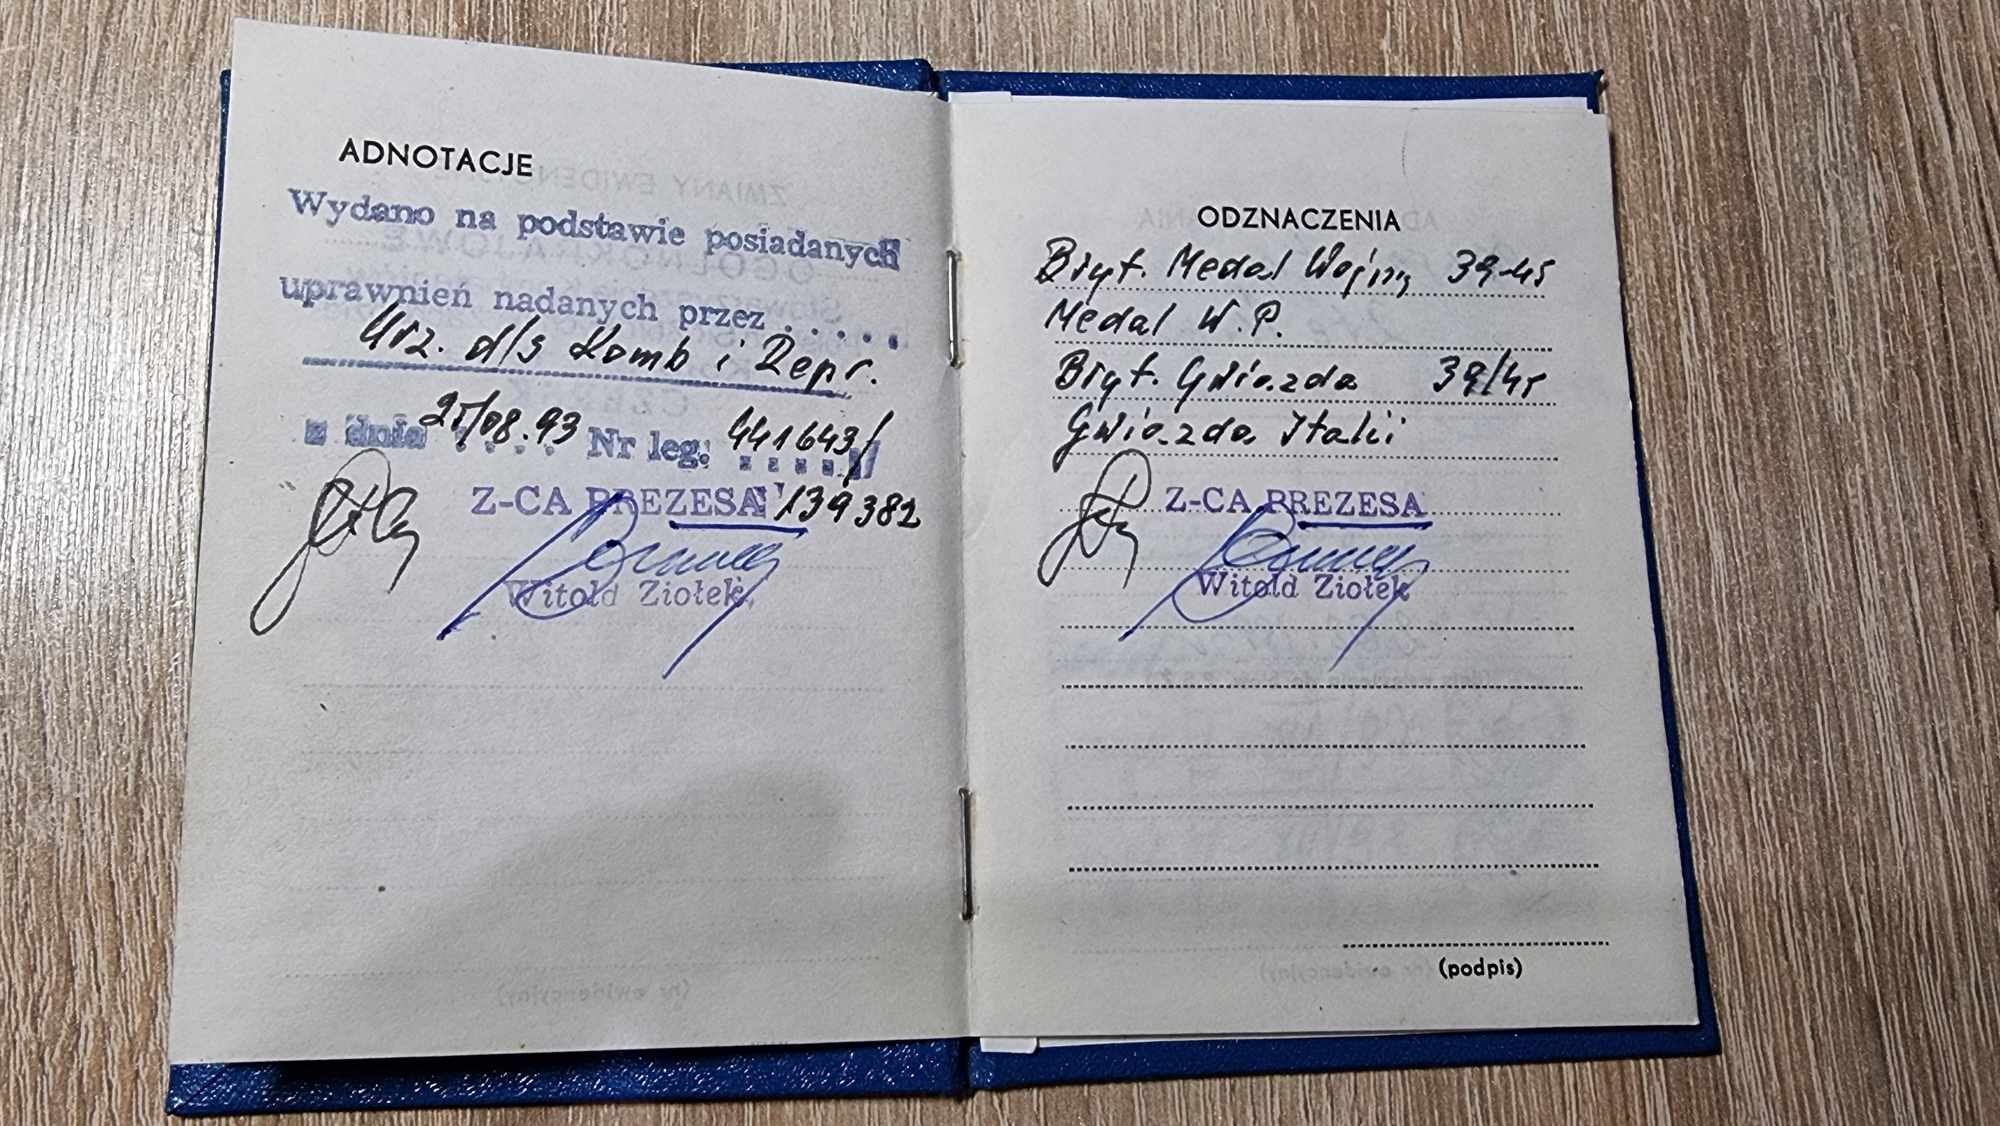 ADNOTACJE
Wydano na podstawie posiadanych
uprawnień nadanych przez . . . . .
Urz. d/s Komb i Repr.
z dnia 25/08.93 Nr leg: 441643/
Z-CA PREZESA 139382
Witold Ziołek
ODZNACZENIA
Bryt. Medal Wojny 39-45
Medal W.P.
Bryt. Gwiazda 39/45
Gwiazda Italii
Z-CA PREZESA
Witold Ziołek
(podpis)